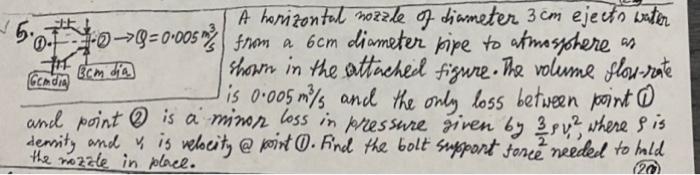 5. ①. ② → Q = 0.005 m³/s
6cm dia
3cm dia
A horizontal nozzle of diameter 3 cm ejects water
from a 6cm diameter pipe to atmosphere as
shown in the attached figure. The volume flow-rate
is 0.005 m³/s and the only loss between point ①
and point ② is a minor loss in pressure given by 3/2 ρv₁², where ρ is
density and v₁ is velocity @ point ①. Find the bolt support force needed to hold
the nozzle in place.
(20)